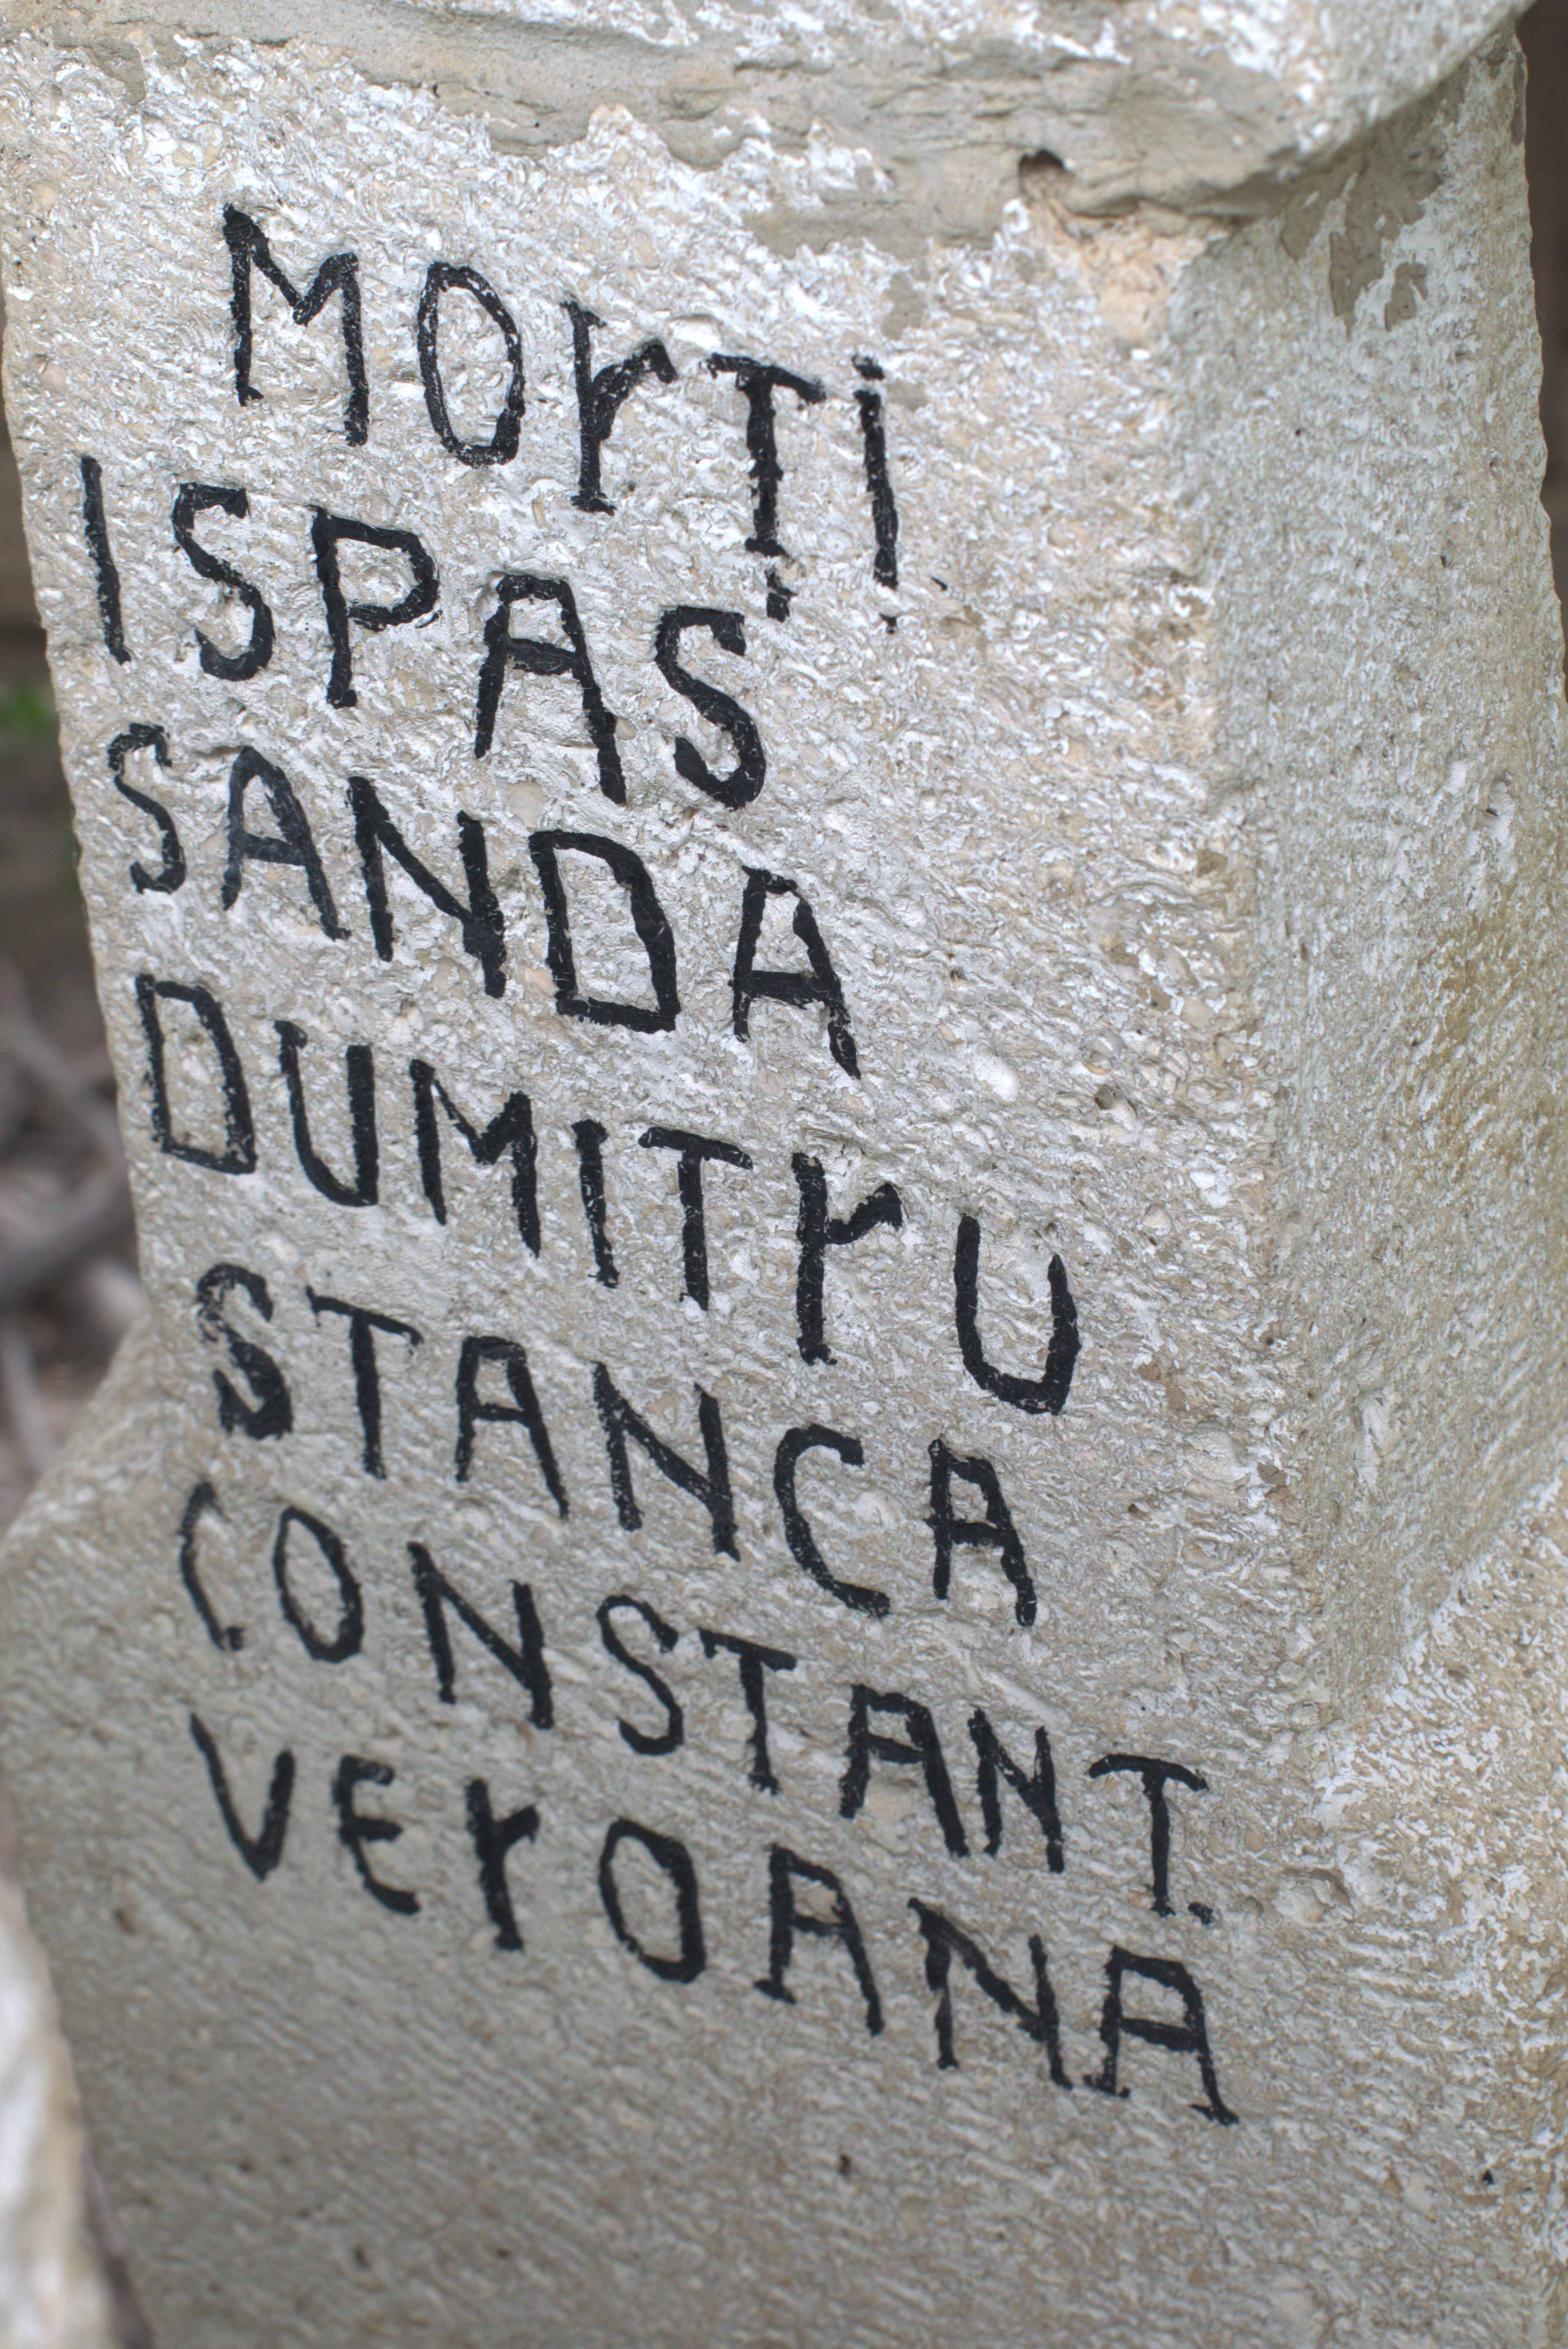 MOrŢi
ISPAS
SANDA
DUMITrU
STANCA
CONSTANT.
VErOANA